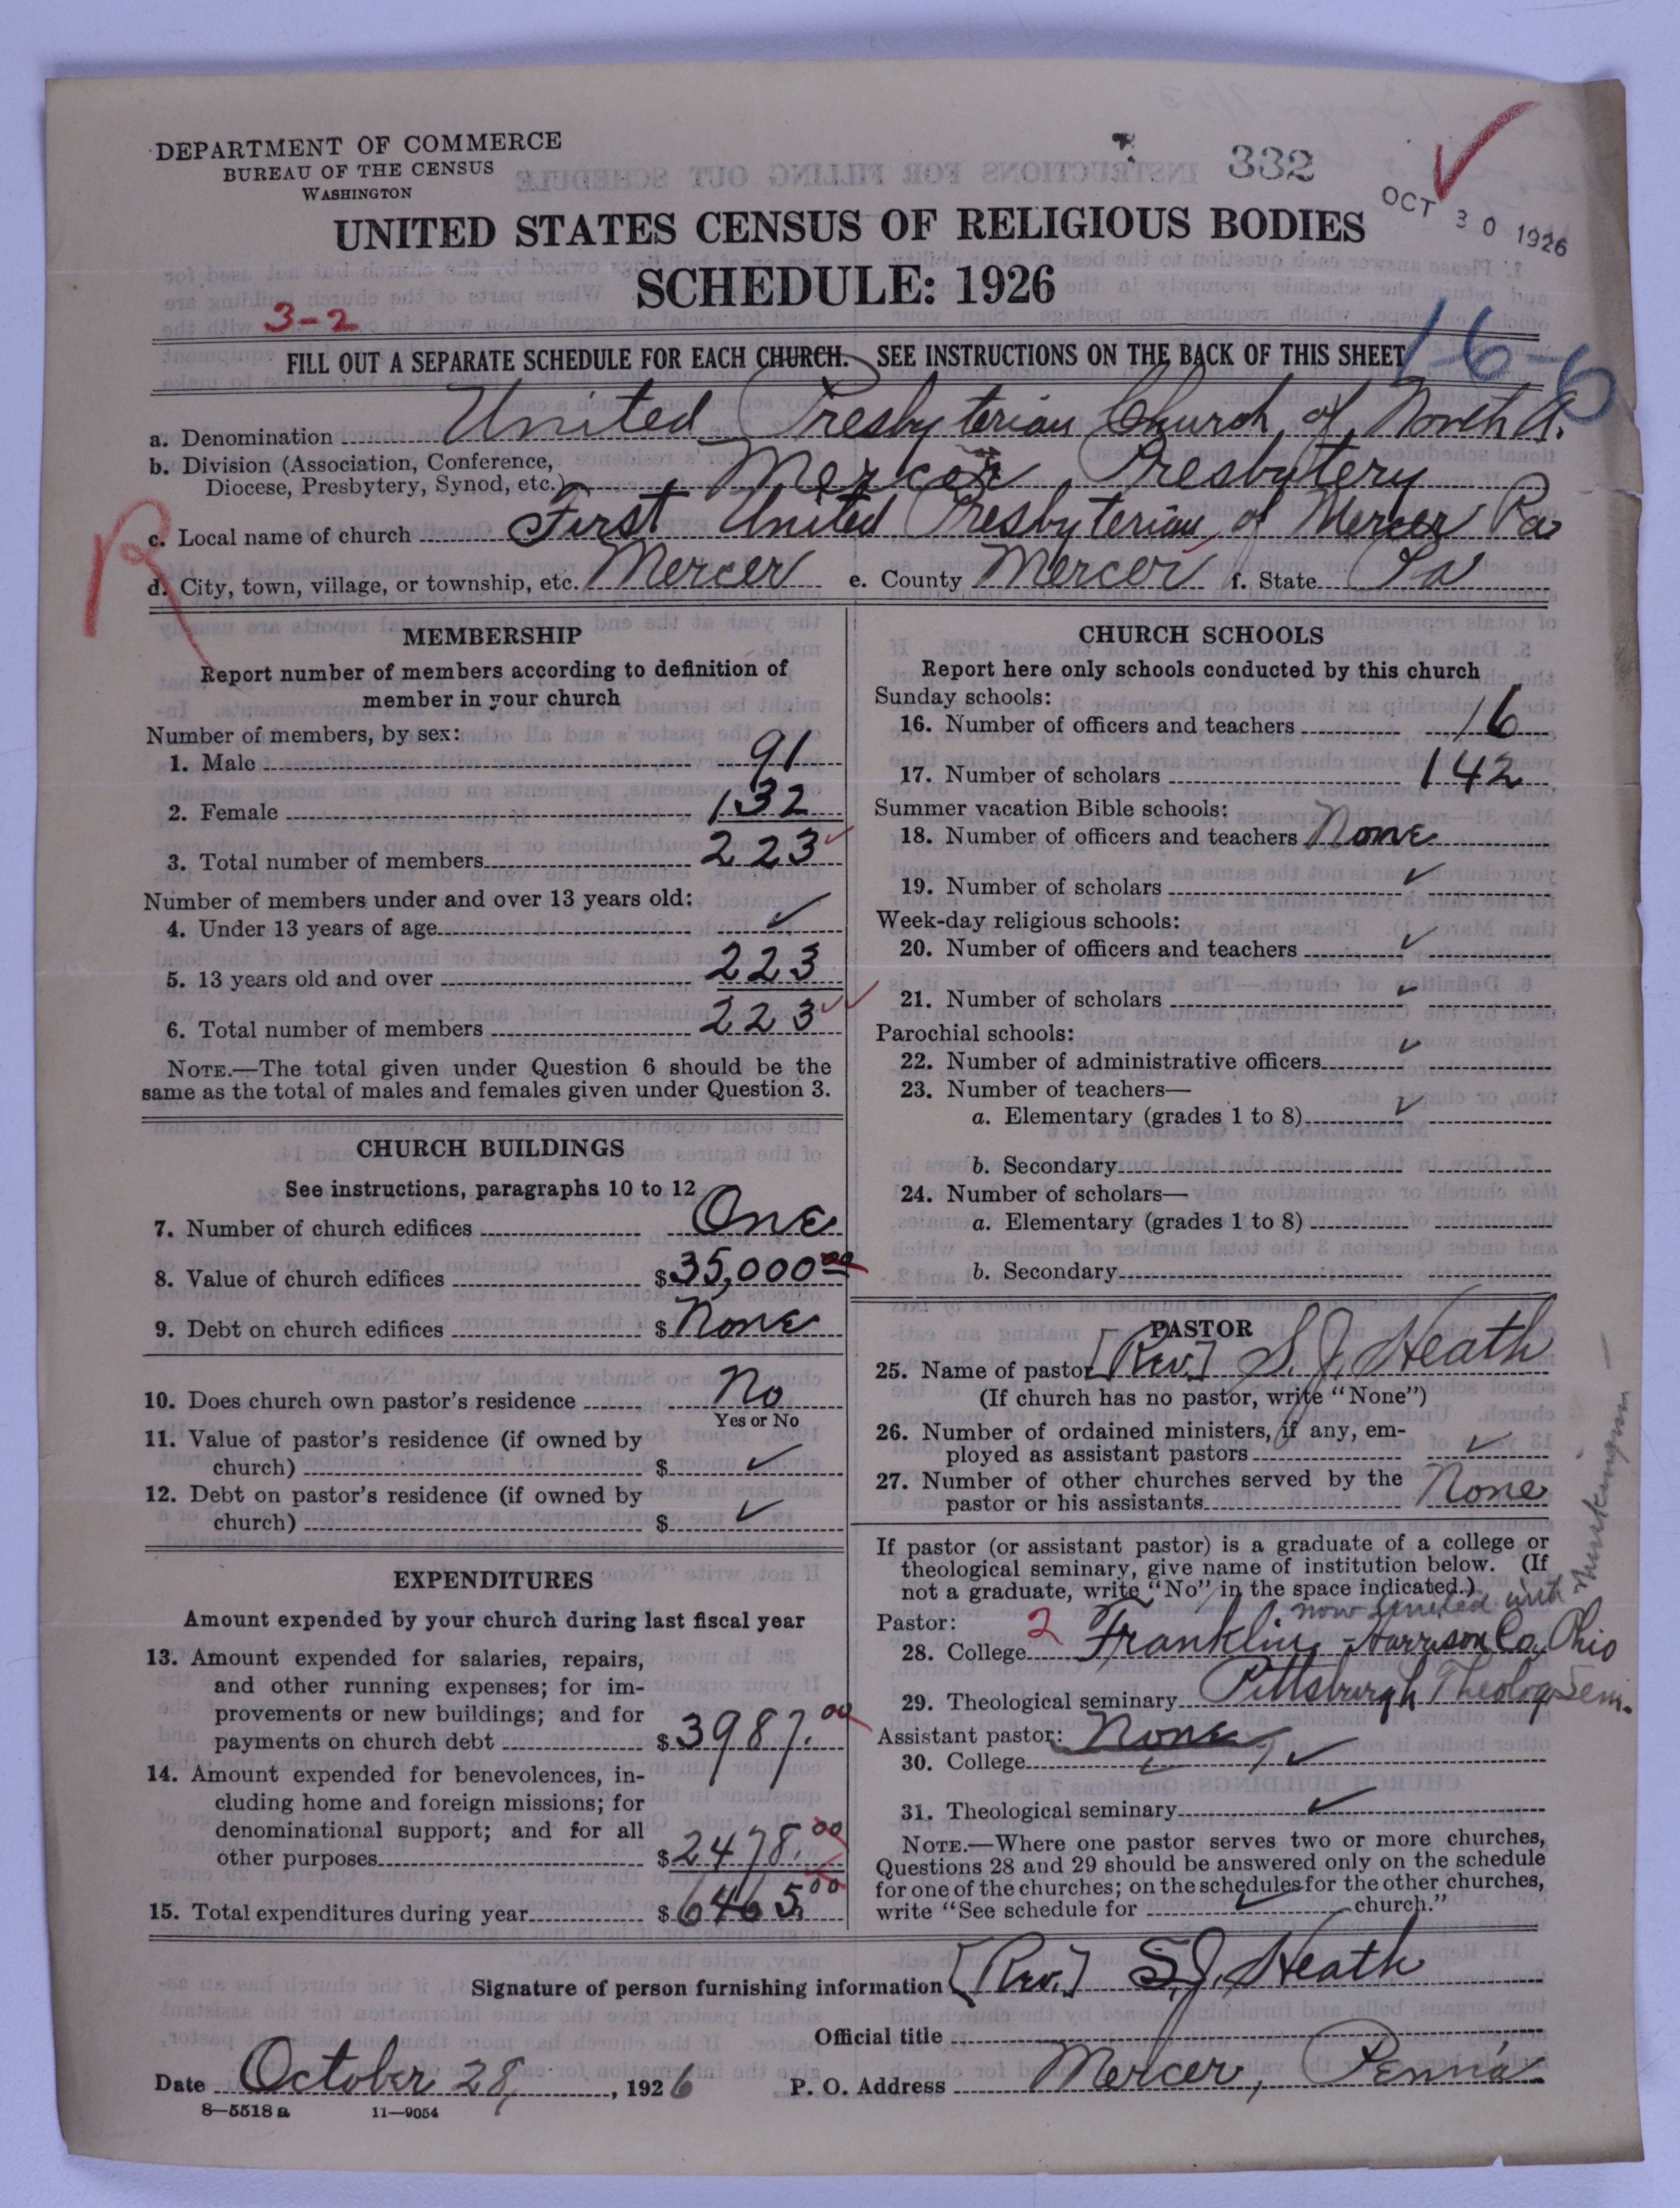 DEPARTMENT OF COMMERCE
BUREAU OF THE CENSUS
WASHINGTON
332
OCT 30 1926
UNITED STATES CENSUS OF RELIGIOUS BODIES
SCHEDULE: 1926
3-2
1-6-6
FILL OUT A SEPARATE SCHEDULE FOR EACH CHURCH. SEE INSTRUCTIONS ON THE BACK OF THIS SHEET
a. Denomination United Presbyterian Church of North A.
b. Division (Association, Conference,
Diocese, Presbytery, Synod, etc.) Mercer Presbytery
R
c. Local name of church First United Presbyterian of Mercer Pa
d. City, town, village, or township, etc. Mercer e. County Mercer f. State Pa
MEMBERSHIP
Report number of members according to definition of
member in your church
Number of members, by sex:
1. Male 91
2. Female 132
3. Total number of members 223
Number of members under and over 13 years old:
4. Under 13 years of age ✓
5. 13 years old and over 223
6. Total number of members 223
NOTE.—The total given under Question 6 should be the
same as the total of males and females given under Question 3.
CHURCH BUILDINGS
See instructions, paragraphs 10 to 12
7. Number of church edifices One
8. Value of church edifices $35,000.00
9. Debt on church edifices $ None
10. Does church own pastor's residence No
Yes or No
11. Value of pastor's residence (if owned by
church) $ ✓
12. Debt on pastor's residence (if owned by
church) $ ✓
EXPENDITURES
Amount expended by your church during last fiscal year
13. Amount expended for salaries, repairs,
and other running expenses; for im-
provements or new buildings; and for
payments on church debt $3987.00
14. Amount expended for benevolences, in-
cluding home and foreign missions; for
denominational support; and for all
other purposes $2478.00
15. Total expenditures during year $6465.00
CHURCH SCHOOLS
Report here only schools conducted by this church
Sunday schools:
16. Number of officers and teachers 16
17. Number of scholars 142
Summer vacation Bible schools:
18. Number of officers and teachers None
19. Number of scholars ✓
Week-day religious schools:
20. Number of officers and teachers ✓
21. Number of scholars ✓
Parochial schools:
22. Number of administrative officers ✓
23. Number of teachers—
a. Elementary (grades 1 to 8) ✓
b. Secondary
24. Number of scholars—
a. Elementary (grades 1 to 8)
b. Secondary
PASTOR
25. Name of pastor [Rev.] S. J. Heath
(If church has no pastor, write "None")
26. Number of ordained ministers, if any, em-
ployed as assistant pastors ✓
27. Number of other churches served by the
pastor or his assistants None
If pastor (or assistant pastor) is a graduate of a college or
theological seminary, give name of institution below. (If
not a graduate, write "No" in the space indicated.)
now United with Muskingum
Pastor:
28. College 2 Franklin, Harrison Co, Ohio
29. Theological seminary Pittsburgh Theolog Sem.
Assistant pastor: None
30. College ✓
31. Theological seminary ✓
NOTE.—Where one pastor serves two or more churches,
Questions 28 and 29 should be answered only on the schedule
for one of the churches; on the schedules for the other churches,
write "See schedule for ✓ church."
Signature of person furnishing information [Rev.] S. J. Heath
Official title
Date October 28, 1926 P. O. Address Mercer, Penn'a
8—5518 a 11—9054